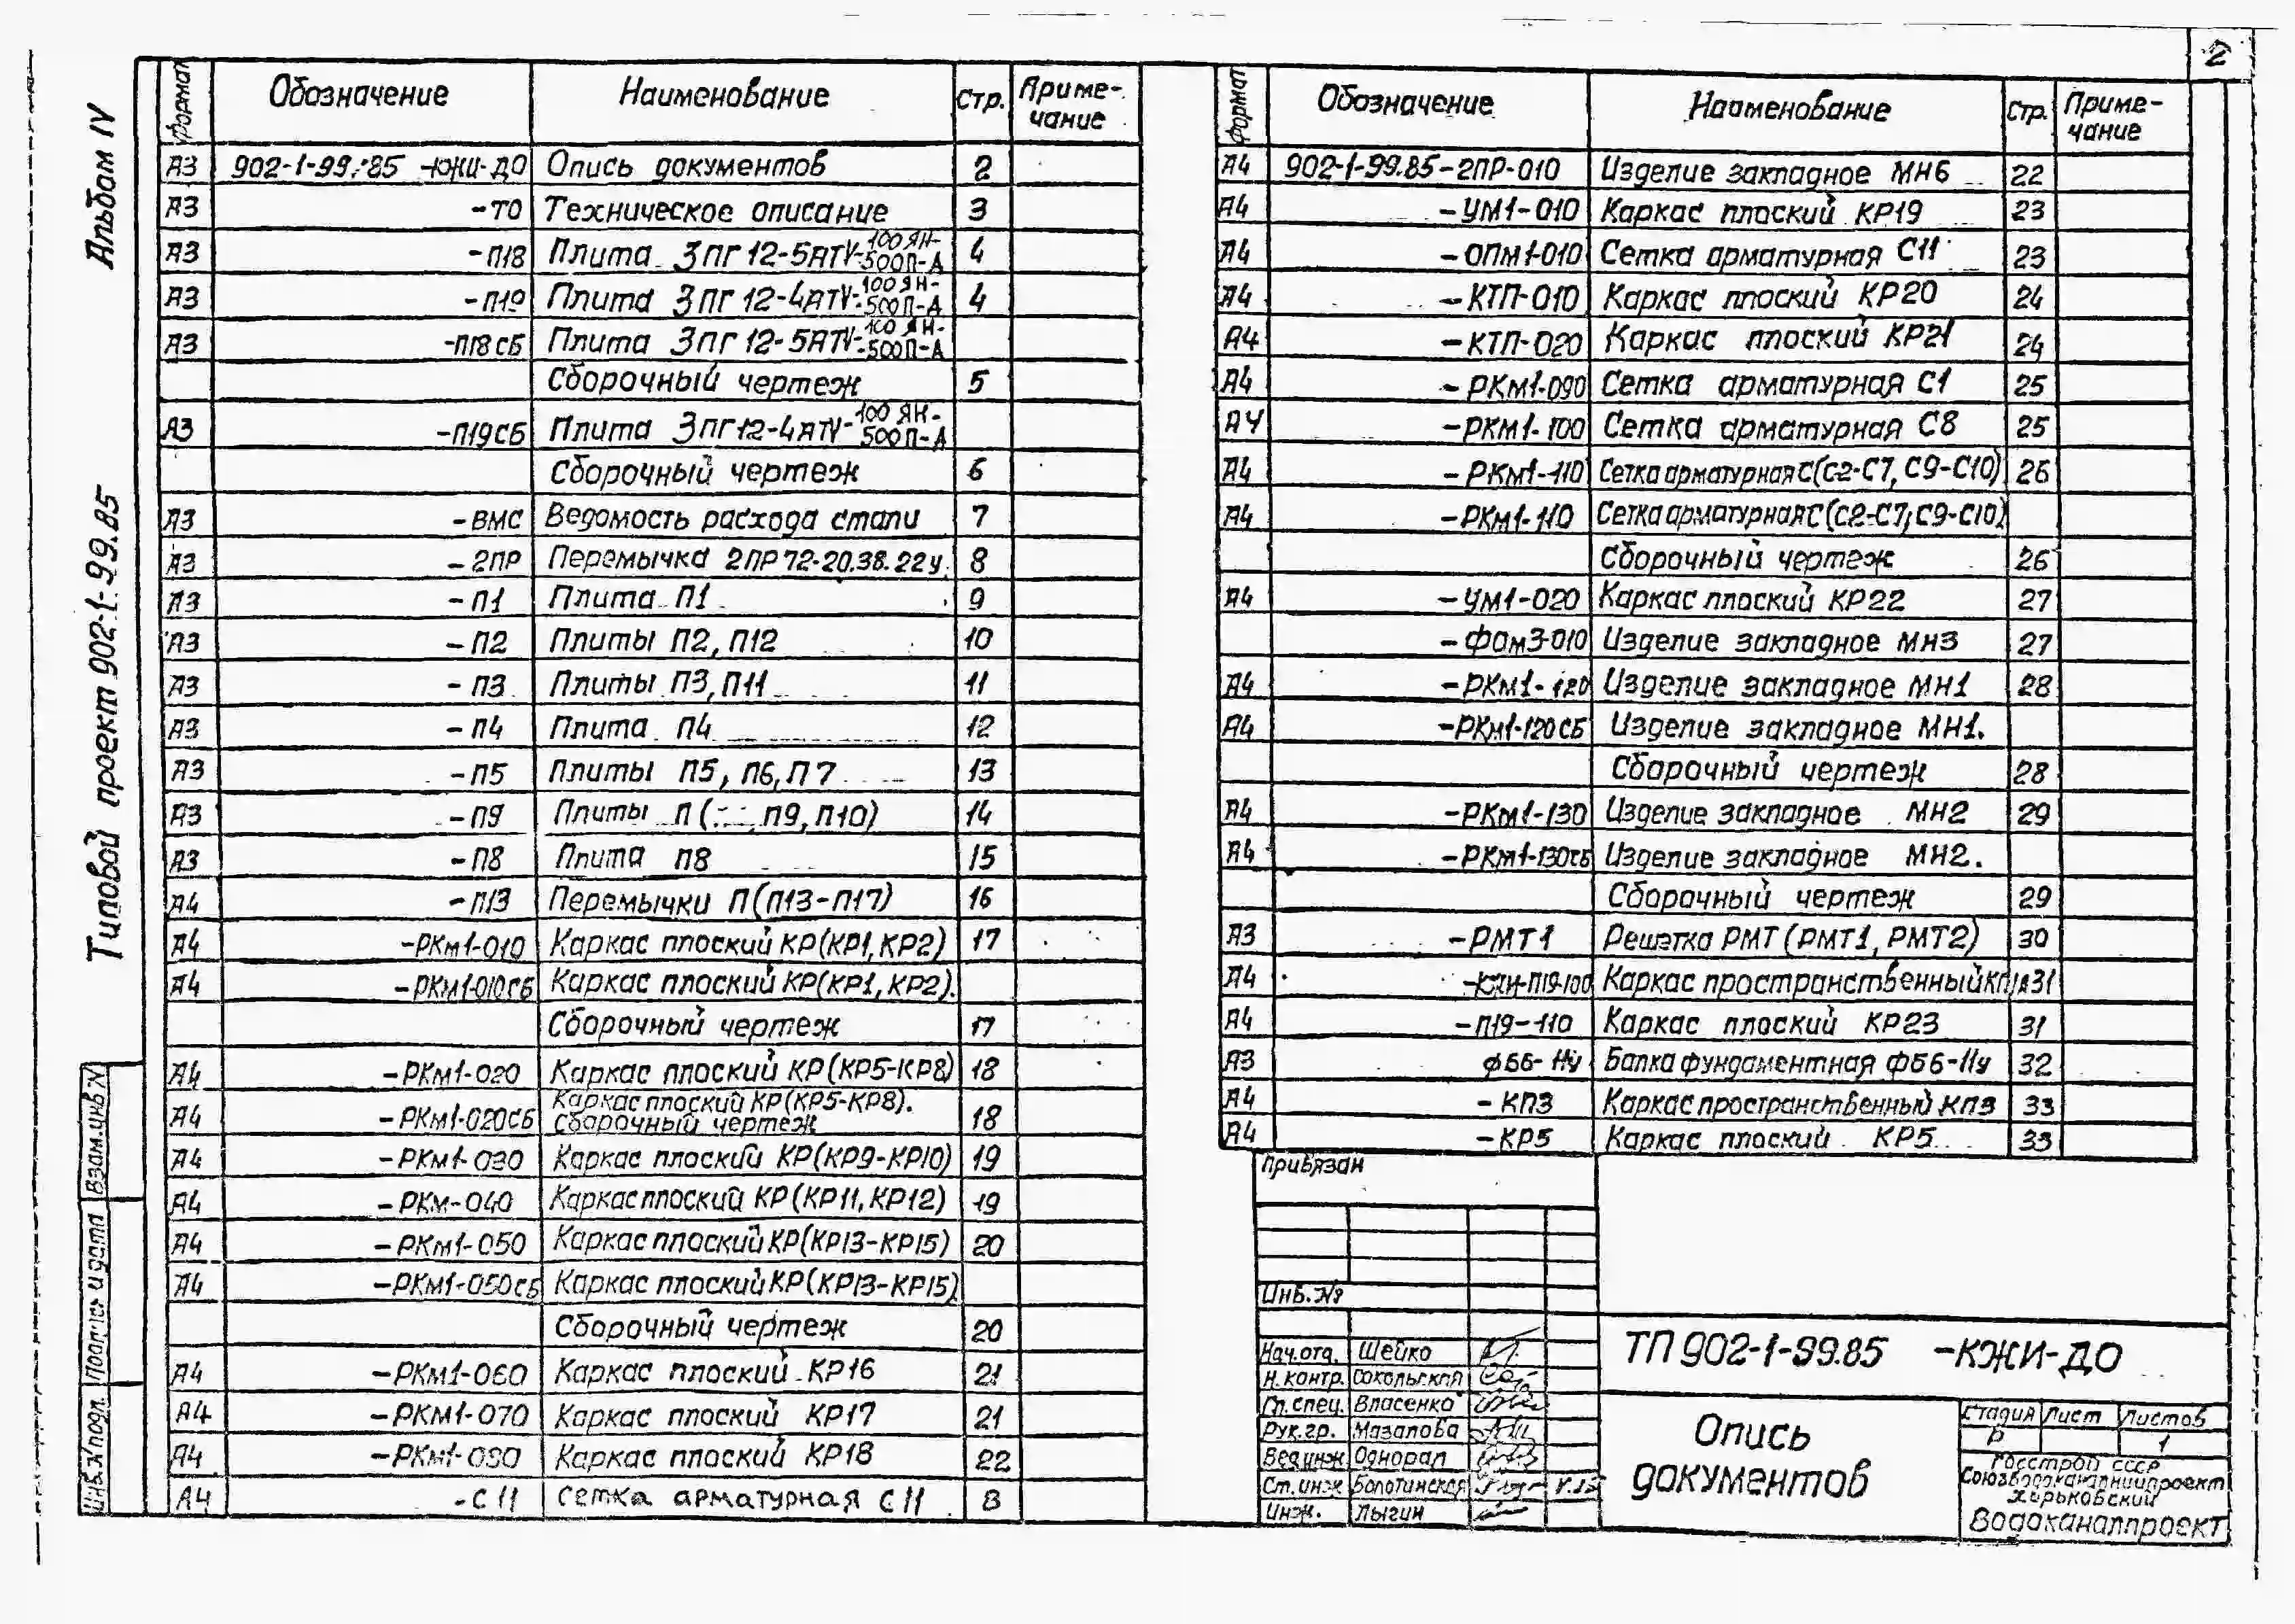 2
Альбом IV
Типовой проект 902-1-99.85
Взам.инв N
Подпись и дата
Инв.N подл.
Формат Обозначение Наименование Стр. Приме-чание
А3 902-1-99.85 -КЖИ-ДО Опись документов 2
А3 -ТО Техническое описание 3
А3 -П18 Плита 3ПГ12-5АТV-100ЯН-500П-А 4
А3 -П19 Плита 3ПГ12-4АТV-100ЯН-500П-А 4
А3 -П18СБ Плита 3ПГ12-5АТV-100ЯН-500П-А
Сборочный чертеж 5
А3 -П19СБ Плита 3ПГ12-4АТV-100ЯН-500П-А
Сборочный чертеж 6
А3 -ВМС Ведомость расхода стали 7
А3 -2ПР Перемычка 2ПР72-20.38.22у. 8
А3 -П1 Плита П1 9
А3 -П2 Плиты П2, П12 10
А3 -П3 Плиты П3, П11 11
А3 -П4 Плита П4 12
А3 -П5 Плиты П5, П6, П7 13
А3 -П9 Плиты П( П9, П10) 14
А3 -П8 Плита П8 15
А4 -П13 Перемычки П(П13-П17) 16
А4 -РКм1-010 Каркас плоский КР(КР1, КР2) 17
А4 -РКм1-010СБ Каркас плоский КР(КР1, КР2).
Сборочный чертеж 17
А4 -РКм1-020 Каркас плоский КР(КР5-КР8) 18
А4 -РКм1-020СБ Каркас плоский КР(КР5-КР8). Сборочный чертеж 18
А4 -РКм1-030 Каркас плоский КР(КР9-КР10) 19
А4 -РКм-040 Каркас плоский КР(КР11, КР12) 19
А4 -РКм1-050 Каркас плоский КР(КР13-КР15) 20
А4 -РКм1-050СБ Каркас плоский КР(КР13-КР15).
Сборочный чертеж 20
А4 -РКм1-060 Каркас плоский КР16 21
А4 -РКМ1-070 Каркас плоский КР17 21
А4 -РКм1-080 Каркас плоский КР18 22
А4 -С11 Сетка арматурная С11 8
Формат Обозначение Наименование Стр. Приме-чание
А4 902-1-99.85-2ПР-010 Изделие закладное МН6 22
А4 -УМ1-010 Каркас плоский КР19 23
А4 -ОПМ1-010 Сетка арматурная С11 23
А4 -КТП-010 Каркас плоский КР20 24
А4 -КТП-020 Каркас плоский КР21 24
А4 -РКм1-090 Сетка арматурная С1 25
А4 -РКм1-100 Сетка арматурная С8 25
А4 -РКм1-110 Сетка арматурная С(С2-С7, С9-С10) 26
А4 -РКм1-110 Сетка арматурная С(С2-С7, С9-С10)
Сборочный чертеж 26
А4 -УМ1-020 Каркас плоский КР22 27
-ФОм3-010 Изделие закладное МН3 27
А4 -РКм1-120 Изделие закладное МН1 28
А4 -РКм1-120СБ Изделие закладное МН1.
Сборочный чертеж 28
А4 -РКм1-130 Изделие закладное МН2 29
А4 -РКм1-130СБ Изделие закладное МН2.
Сборочный чертеж 29
А3 -РМТ1 Решетка РМТ(РМТ1, РМТ2) 30
А4 -КЖИ-П19-100 Каркас пространственный 31
А4 -П19-110 Каркас плоский КР23 31
А3 ФБ6-11у Балка фундаментная ФБ6-11у 32
А4 -КП3 Каркас пространственный КП3 33
А4 -КР5 Каркас плоский КР5 33
Привязан
Инв.№
Нач.отд. Шейко
Н.контр. Сокольская
Гл.спец. Власенко
Рук.гр. Мазалова
Вед.инж Однорал
Ст.инж Болотинская
Инж. Лыгин
ТП 902-1-99.85 -КЖИ-ДО
Опись
документов
Стадия Лист Листов
Р 1
Госстрой СССР
Союзводоканалниипроект
Харьковский
Водоканалпроект